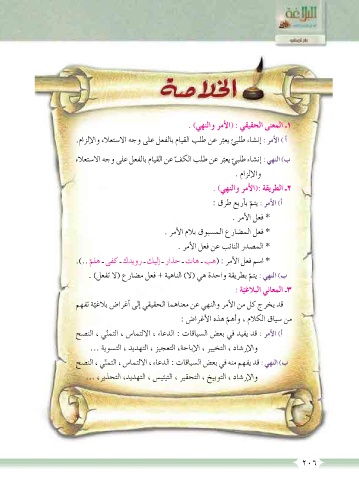 البلاغة
الخلاصة
١ـ المعنى الحقيقي : (الأمر والنهي) .
أ) الأمر : إنشاء طلبيّ يعبّر عن طلب القيام بالفعل على وجه الاستعلاء والإلزام.
ب) النهي : إنشاء طلبيّ يعبّر عن طلب الكفّ عن القيام بالفعل على وجه الاستعلاء
والإلزام .
٢ـ الطريقة :(الأمر والنهي) .
أ) الأمر : يتمّ بأربع طرق :
* فعل الأمر .
* فعل المضارع المسبوق بلام الأمر .
* المصدر النائب عن فعل الأمر .
* اسم فعل الأمر : (هب ـ هات ـ حذار ـ إليك ـ رويدك ـ كفى ـ هلمّ ..).
ب) النهي : يتمّ بطريقة واحدة هي (لا) الناهية + فعل مضارع (لا تفعل) .
٣ـ المعاني البلاغيّة :
قد يخرج كل من الأمر والنهي عن معناهما الحقيقي إلى أغراض بلاغيّة تفهم
من سياق الكلام ، وأهمّ هذه الأغراض :
أ) الأمر : قد يفيد في بعض السياقات : الدعاء ، الالتماس ، التمنّي ، النصح
والإرشاد ، التخيير ، الإباحة، التعجيز ، التهديد ، التسوية ...
ب) النهي : قد يفهم منه في بعض السياقات : الدعاء ، الالتماس ، التمنّي ، النصح
والإرشاد ، التوبيخ ، التحقير ، التيئيس ، التهديد، التحذير، ...
٢٠٦